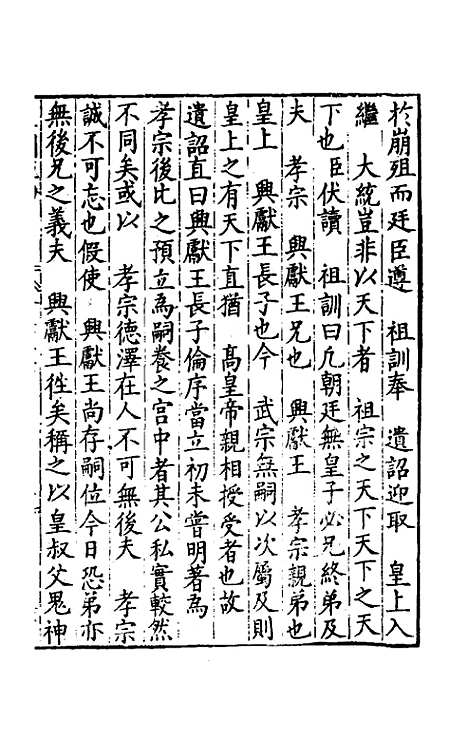 於崩殂而廷臣遵　祖訓奉　遺詔迎取　皇上入
繼　大統豈非以天下者　祖宗之天下天下之天
下也臣伏讀　祖訓曰凡朝廷無皇子必兄終弟及
夫　孝宗　興獻王兄也　興獻王　孝宗親弟也
皇上　興獻王長子也今　武宗無嗣以次屬及則
皇上之有天下直猶　高皇帝親相授受者也故
遺詔直曰興獻王長子倫序當立初未嘗明著為
孝宗後比之預立為嗣養之宮中者其公私實較然
不同矣或以　孝宗德澤在人不可無後夫　孝宗
誠不可忘也假使　興獻王尚存嗣位今日恐弟亦
無後兄之義夫　興獻王徃矣稱之以皇叔父鬼神